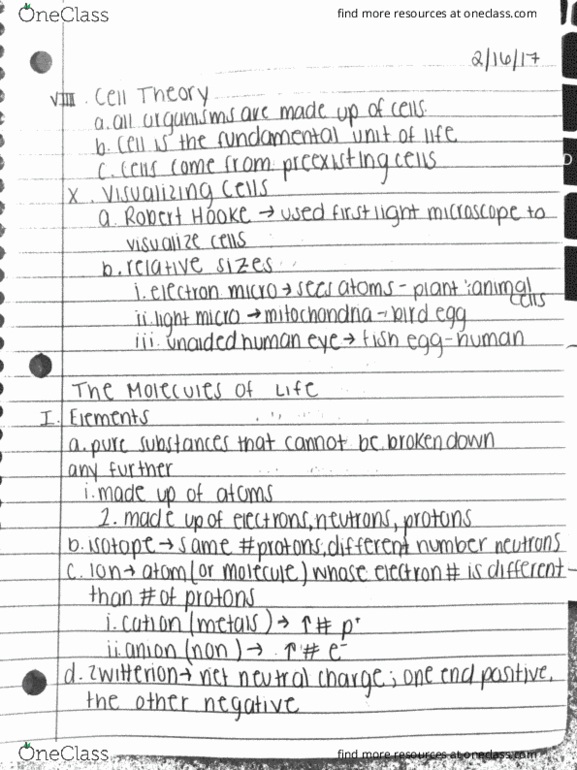 OneClass
find more resources at oneclass.com
2/16/17
VIII. Cell Theory
a. all organisms are made up of cells.
b. cell is the fundamental unit of life
c. cells come from preexisting cells
X. Visualizing Cells
a. Robert Hooke → used first light microscope to
visualize cells
b. relative sizes
i. electron micro → sees atoms - plant : animal
cells
ii. light micro → mitochondria - bird egg
iii. unaided human eye → fish egg - human
The Molecules of Life
I. Elements
a. pure substances that cannot be broken down
any further
i. made up of atoms
2. made up of electrons, neutrons, protons
b. isotope → same # protons, different number neutrons
c. Ion → atom (or molecule) whose electron # is different
than # of protons
i. cation (metals) → ↑ # p⁺
ii. anion (non) → ↑ # e⁻
d. zwitterion → net neutral charge; one end positive,
the other negative
OneClass
find more resources at oneclass.com